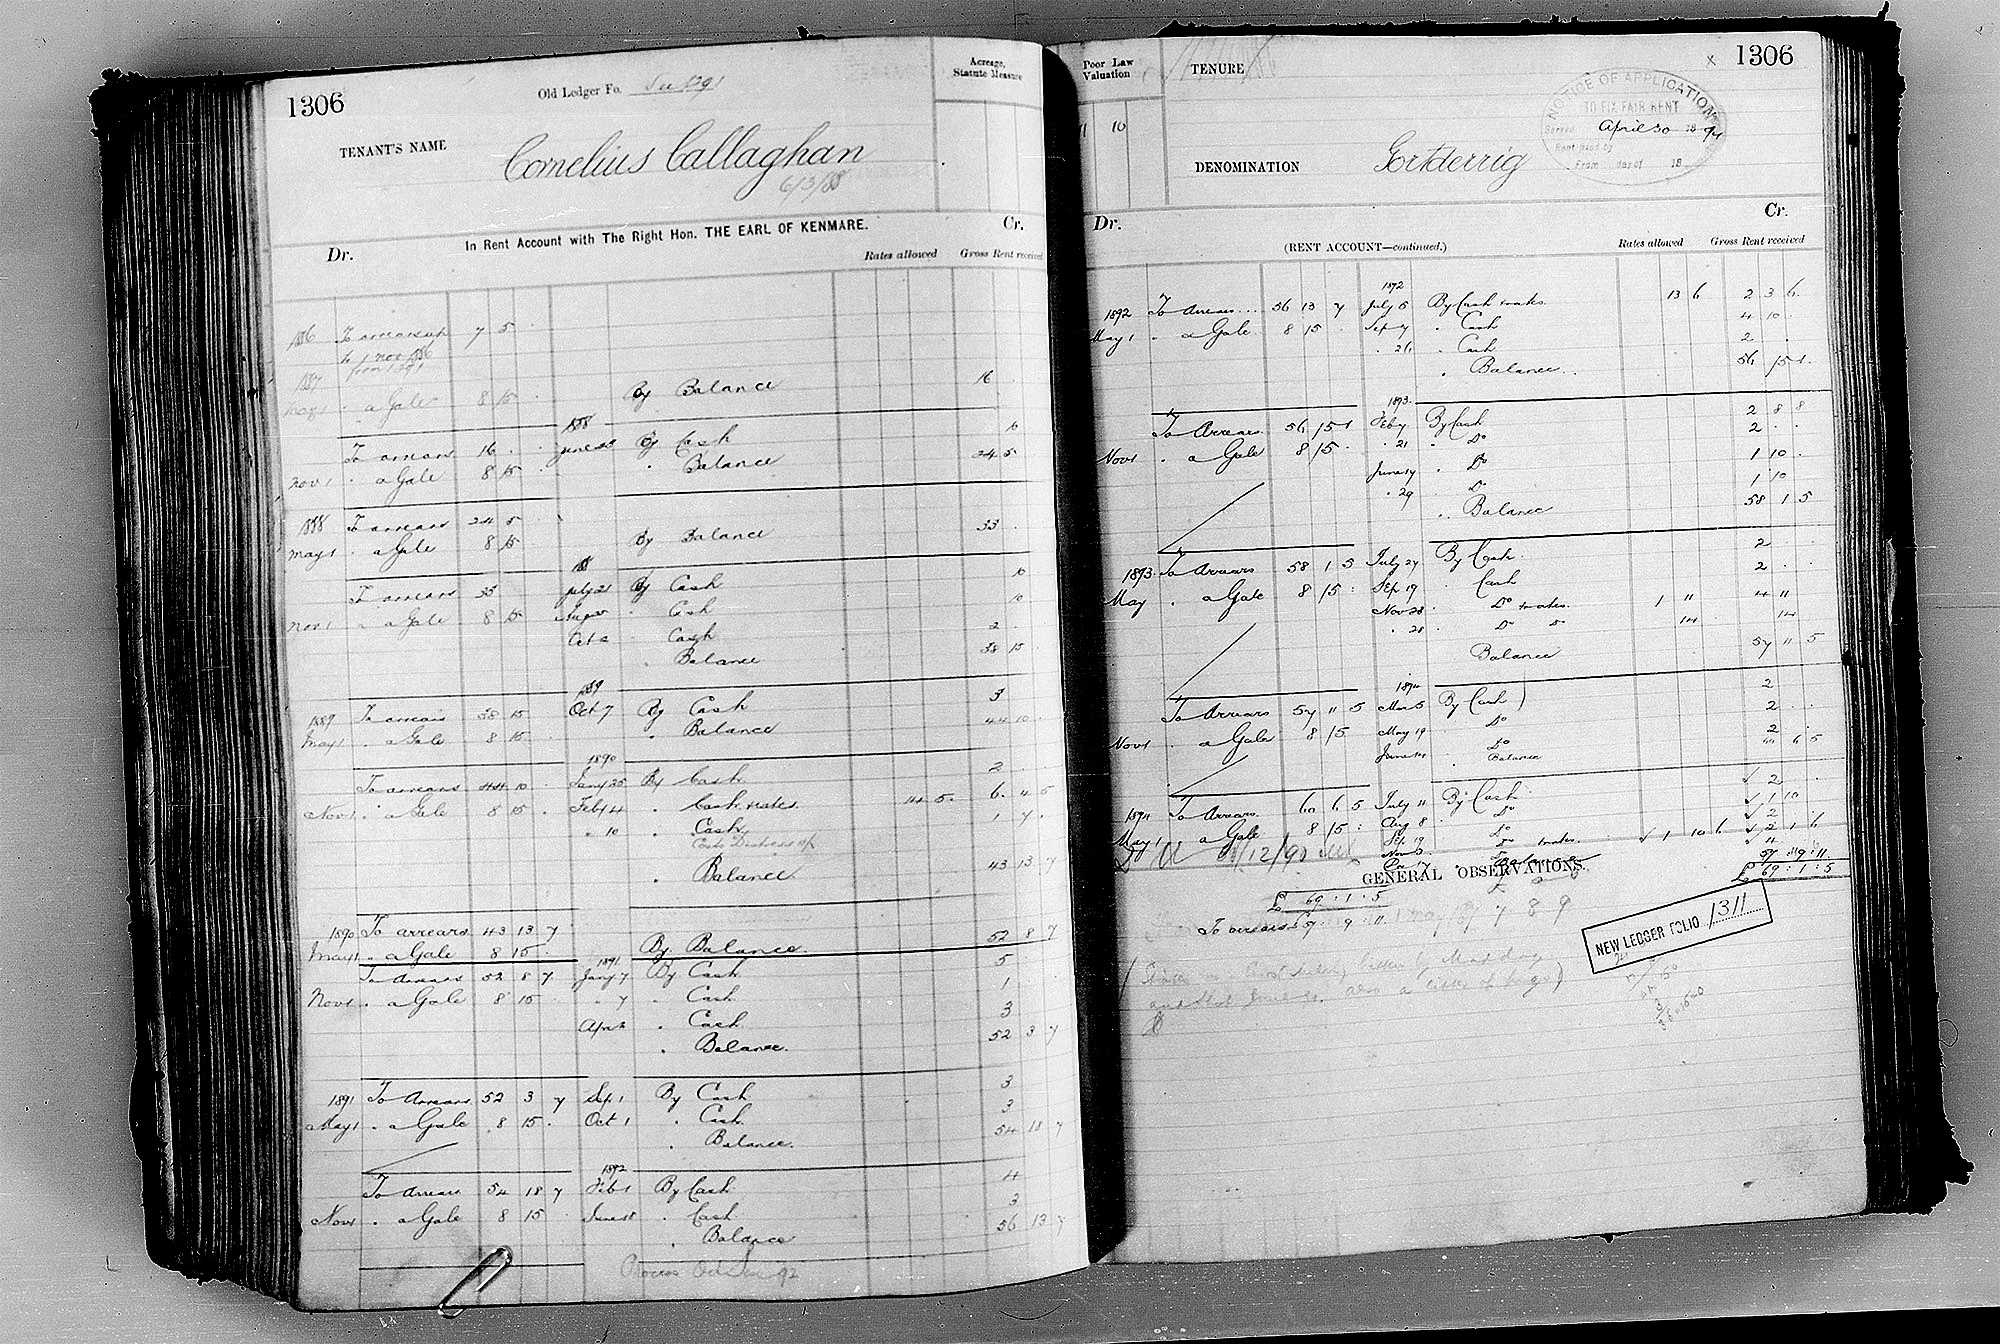 1306
Old Ledger Fo. See 1291
Acreage, Statute Measure
TENANT'S NAME Cornelius Callaghan
6/3/88
In Rent Account with The Right Hon. THE EARL OF KENMARE.
Dr. Cr.
Rates allowed Gross Rent received
1886 To arrears up 7 5
to 1 Nov 1886
from 1291
1887
May 1 " a Gale 8 15 By Balance 16
1888
To arrears 16 June 23 By Cash 10
Nov 1 " a Gale 8 15 " Balance 24 5
1888 To arrears 24 5
May 1 " a Gale 8 15 By Balance 33
188
To arrears 33 July 21 By Cash 10
Nov 1 " a Gale 8 15 Aug " Cash 10
Oct " Cash 2
" Balance 38 15
1889
1889 To arrears 38 15 Oct 7 By Cash 3
May 1 " a Gale 8 15 " Balance 44 10
1890
To arrears 44 10 Jany 25 By Cash 2
Nov 1 " a Gale 8 15 Feb 14 " Cash & rates 14 5 6 4 5
" 10 " Cash 1 7
Costs Distress
" Balance 43 13 7
1890 To arrears 43 13 7
May 1 " a Gale 8 15 By Balance 52 8 7
1891
To Arrears 52 8 7 Jany 7 By Cash 5
Nov 1 " a Gale 8 15 " 7 " Cash 1
Apr 2 " Cash 3
" Balance 52 3 7
1891 To Arrears 52 3 7 Sep 1 By Cash 3
May 1 " a Gale 8 15 Oct 1 " Cash 3
" Balance 54 18 7
1892
To Arrears 54 18 7 Feb 1 By Cash 4
Nov 1 " a Gale 8 15 June 18 " Cash 3
" Balance 56 13 7
Process 92
Poor Law Valuation
10
TENURE
x 1306
NOTICE OF APPLICATION
TO FIX FAIR RENT
Served April 30 1894
Rent fixed by
From day of 18
DENOMINATION Gortderrig
Dr. Cr.
(RENT ACCOUNT—continued.)
Rates allowed Gross Rent received
1892
1892 To Arrears 56 13 7 July 5 By Cash & rates 13 6 2 3 6
May 1 " a Gale 8 15 Sep 7 " Cash 4 10
" 26 " Cash 2
" Balance 56 15 1
1893
To Arrears 56 15 1 Feb 7 By Cash 2 8 8
Nov 1 " a Gale 8 15 " 21 " Do 2
June 17 " Do 1 10
" 29 " Do 1 10
" Balance 58 1 5
1893 To Arrears 58 1 5 July 27 By Cash 2
May " a Gale 8 15 Sep 19 " Cash 2
Nov 28 " Do & rates 1 11 4 11
" 28 " Do Do 14 14
Balance 57 11 5
1894
To Arrears 57 11 5 Mar 5 By Cash 2
Nov 1 " a Gale 8 15 May 19 Do 2
June 14 Do 2
" Balance 60 6 5
1894 To Arrears 60 6 5 July 11 By Cash 2
May 1 " a Gale 8 15 Aug 8 " Do 1 10
Sep 19 " Do 2
Nov " Do & rates 1 10 6 2 1 6
Dec 17 " Do 11
Balance 57 19 11
GENERAL OBSERVATIONS.
£ 69 : 1 : 5 £ 69 : 1 : 5
To arrears 57 : 19 : 11
NEW LEDGER FOLIO 1311
also a litter of pigs)